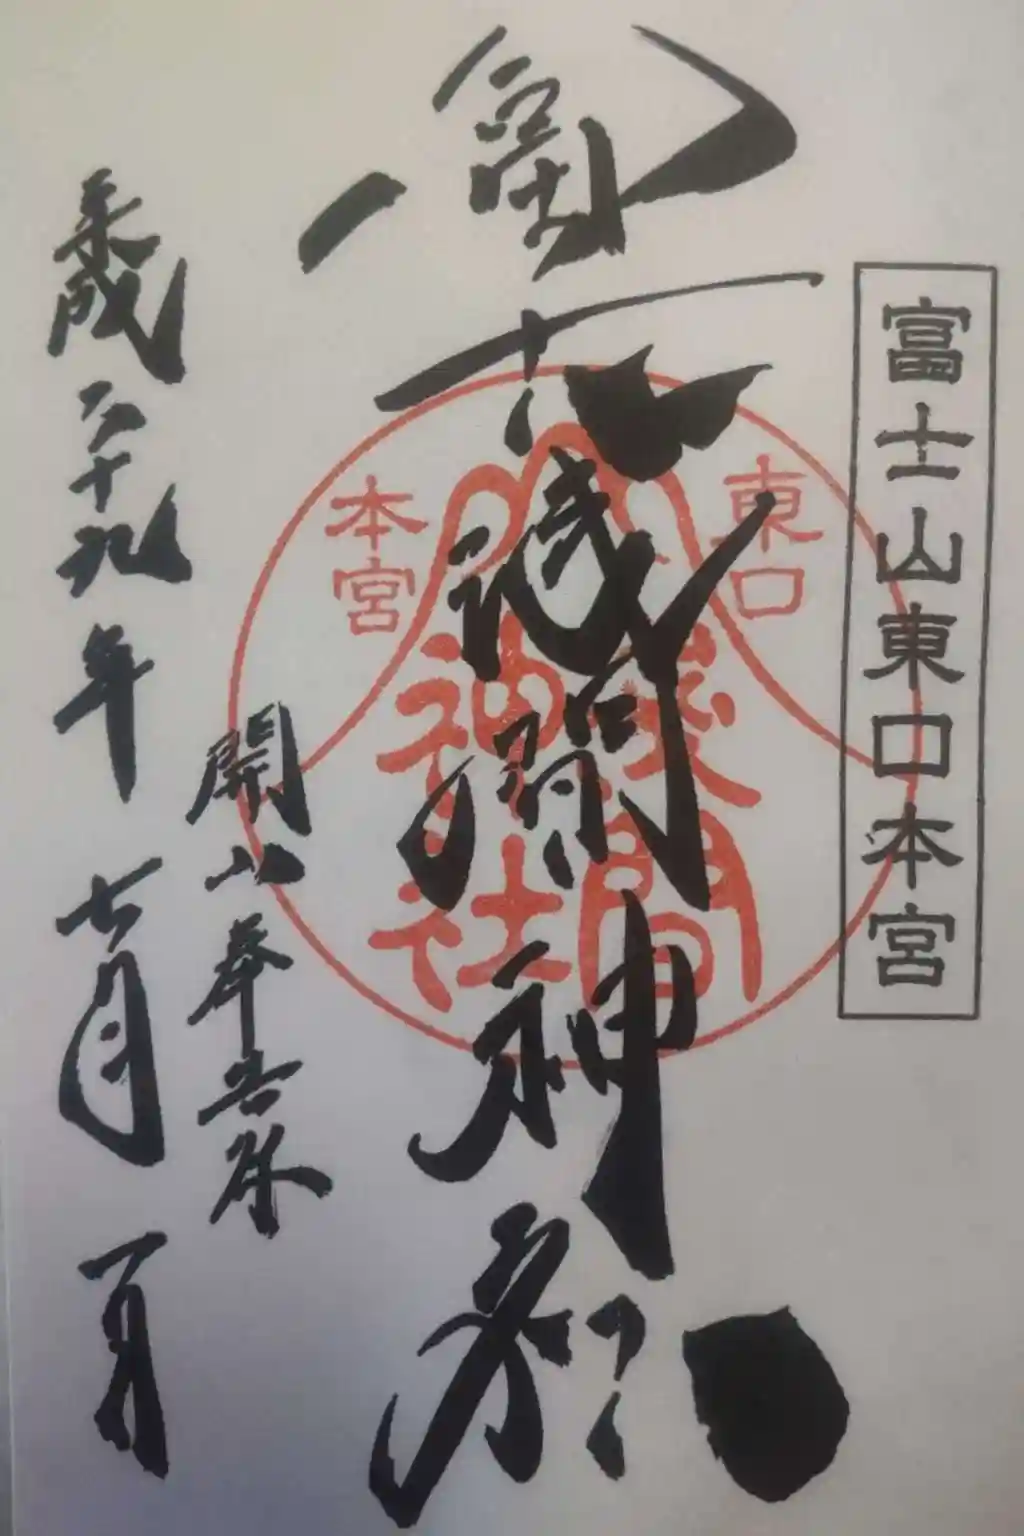 富士山東口本宮
冨士浅間神社
東口
本宮
浅間
神社
開山
平成二十九年七月一日